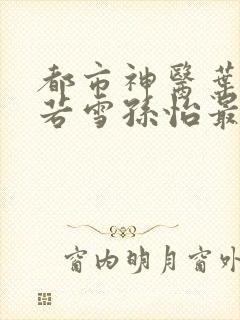 都市神醫葉
若雪孫怡最
窗内明月窗外